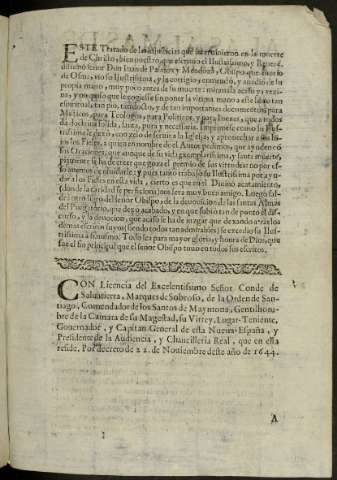 ESTE Tratado de las injusticias que intervinieron en la muerte
de Christo, bien nuestro, que escrivio el Illustrissimo, y Reveré-
dissimo señor Don Iuan de Palafox y Mendoça, Obispo que murio
de Osma, vio su Illustrissima, y lo corrigió, enmendó, y añadió de la
propia mano, muy poco antes de su muerte: miravala acaso
y no quiso que le cogiesse sin poner la vltima mano a este
espiritual, tan pio, tan docto, y de tan importantes documentos para
Misticos, para Teologos, para Politicos, y para Iuezes, que a todos
da doctrina solida, santa, pura y necessaria. Imprimese como su Illus-
trissima le dexó, con zelo de servir a la Iglesia, y aprovechar a los
fieles, a quien en nombre de el Autor pedimos, que ayuden có
sus Oraciones; que aunque de su vida exemplarissima, y santa muerte,
piamente se ha de creer que goza el premio de sus virtudes no por es-
so avemos de olvidarle: y pues tanto trabajó su Illustrissima por ayu-
dar a los Fieles en esta vida, cierto es que en el Divino acatamiento,
(don de la caridad se perficiona) nos sera muy buen amigo. Luego sal-
drá otro librο del señor Obispo, de la devocion de las santas Almas
del Purgatorio, que dexó acabado, y en que subió tan de punto el dis-
curso, y la devocion, que acaso se ha de juzgar que
demas escritos suyos (siendo todos tan admirables) se excedio su Illus-
trissima a si mismo. Todo sea para mayor gloria, y honra de Dios, que
fue el fin principal que el señor Obispo tuuo en todos sus escritos.
CON Licencia del Excelentissimo Señor Conde de
Salvatierra, Marques de Sobroso, de la Orden de San-
tiago, Comendador de los Santos de Maymona, Gentilhom-
bre de la Camara de su Magestad, su Virrey, Lugar-Teniente,
Gouernador, y Capitan General de esta Nueva-España, y
Presidente de la Audiencia, y Chancilleria Real, que en ella
reside. Por decreto de 22. de Noviembre deste año de 1644.
A